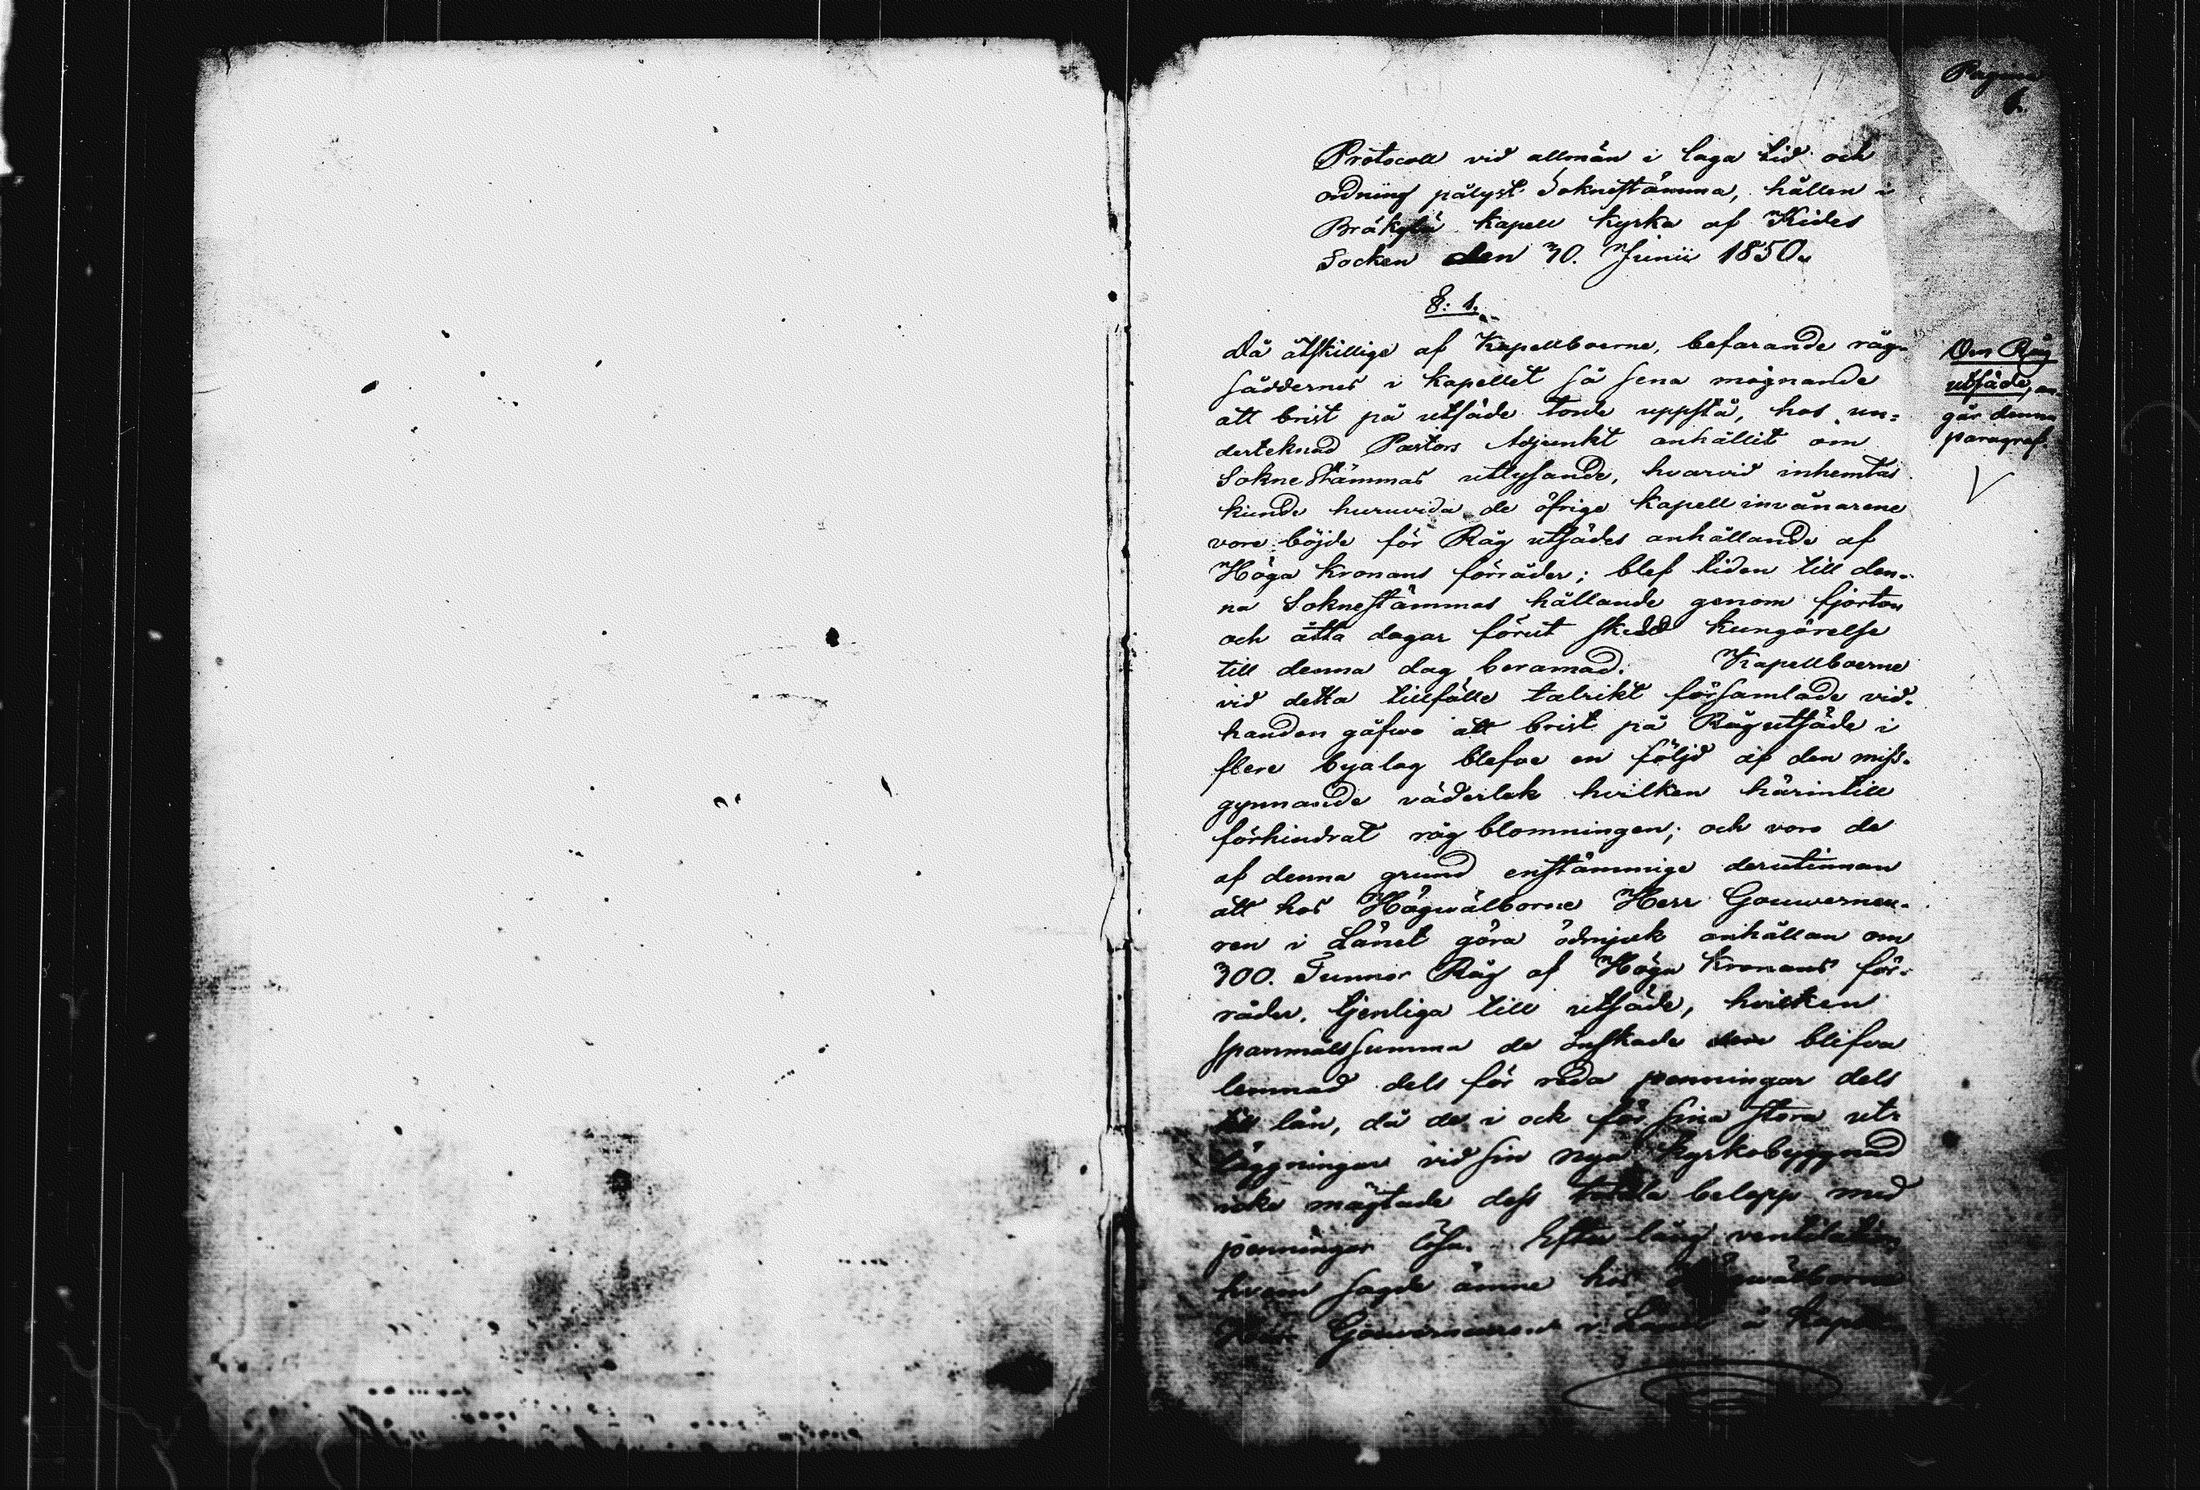 Pagina
6.
Protocoll vid allmän i laga tid och
ordning pålyst Soknestämma, hållen i
Bräkylä kapell kyrka af Kides
Socken den 30. Junii 1850.
§: 1.
Då åtskillige af Kapellboerne, befarande råg-
säddernes i kapellet så sena mognande
att brist på utsäde torde uppstå, hos un=
derteknad Pastors Adjunkt anhållit om
Soknestämmas utlysande, hvarvid inhemtas
kunde huruvida de öfrige kapellinvånarene
vore böjde för Råg utsädes anhållande af
Höga Kronans förråder; blef tiden till den-
na Soknestämmas hållande genom fjorton
och åtta dagar förut skedd kungörelse
till denna dag beramad. Kapellboerne
vid detta tillfälle talrikt församlade vid-
handen gåfwo att brist på Rågutsäde i
flere byalag blefve en följd af den miss-
gynnande väderlek hvilken härintill
förhindrat råg blomningen; och voro de
af denna grund enstämmige derutinnan
att hos Högwälborne Herr Gouverneu-
ren i Länet göra ödmjuk anhållan om
300. Tunnor Råg af Höga Kronans för-
råder, tjenliga till utsäde, hvilken
spanmålssumma de önskade blifva
lemnad dels för reda penningar dels
till lån, då de i och för sina stora ut-
läggningar vid sin nya kyrkobyggnad
icke mägtade dess belopp med
penningar lösa. Efter lång ventilation
hvem sagde ämne hos Högwälborne
Herr Gouverneuren i Länet å Kapell-
Om Råg
utsäde, an-
går denna
paragraf.